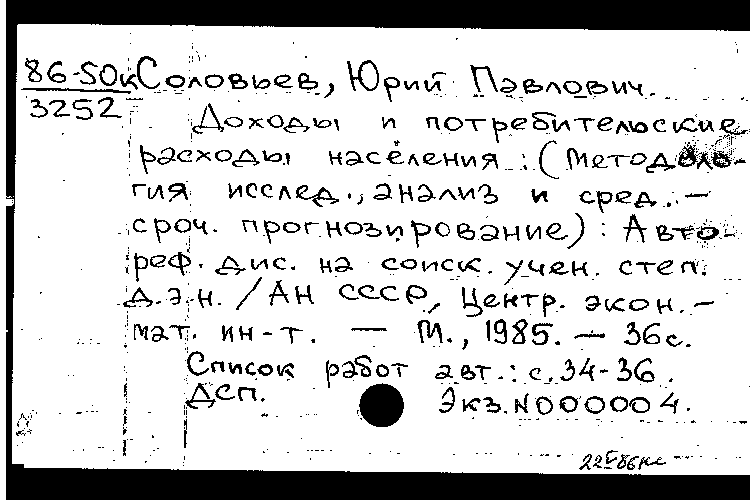 86-50к Соловьев, Юрий Павлович.
3252
Доходы и потребительские
расходы населения : (Методоло-
гия исслед., анализ и сред.-
сроч. прогнозирование) : Авто-
реф. дис. на соиск. учен. степ.
д.э.н. / АН СССР, Центр. экон.-
мат. ин-т. — М., 1985. — 36 с.
Список работ авт.: с. 34-36.
ДСП. Экз. N000004.